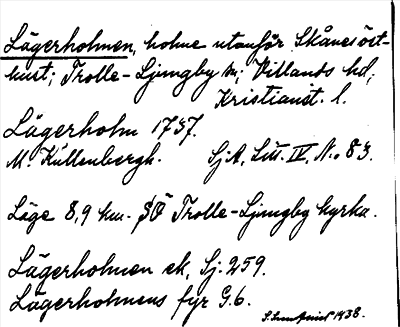 Lägerholmen, holme utanför Skånes öst-
kust; Trolle-Ljungby sn; Villands hd;
Kristianst. l.
Lägerholm 1737.
M. Kullenbergh. SjA, Litt. IV, No 83.
Läge 8,9 km. SÖ Trolle-Ljungby kyrka.
Lägerholmen ek, Sj. 259.
Lägerholmens fyr G.6.
1938.